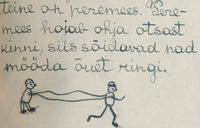 teine on peremees. Pere-
mees hoiab ohja otsast
kinni, siis sõidavad nad
mööda õuet ringi.